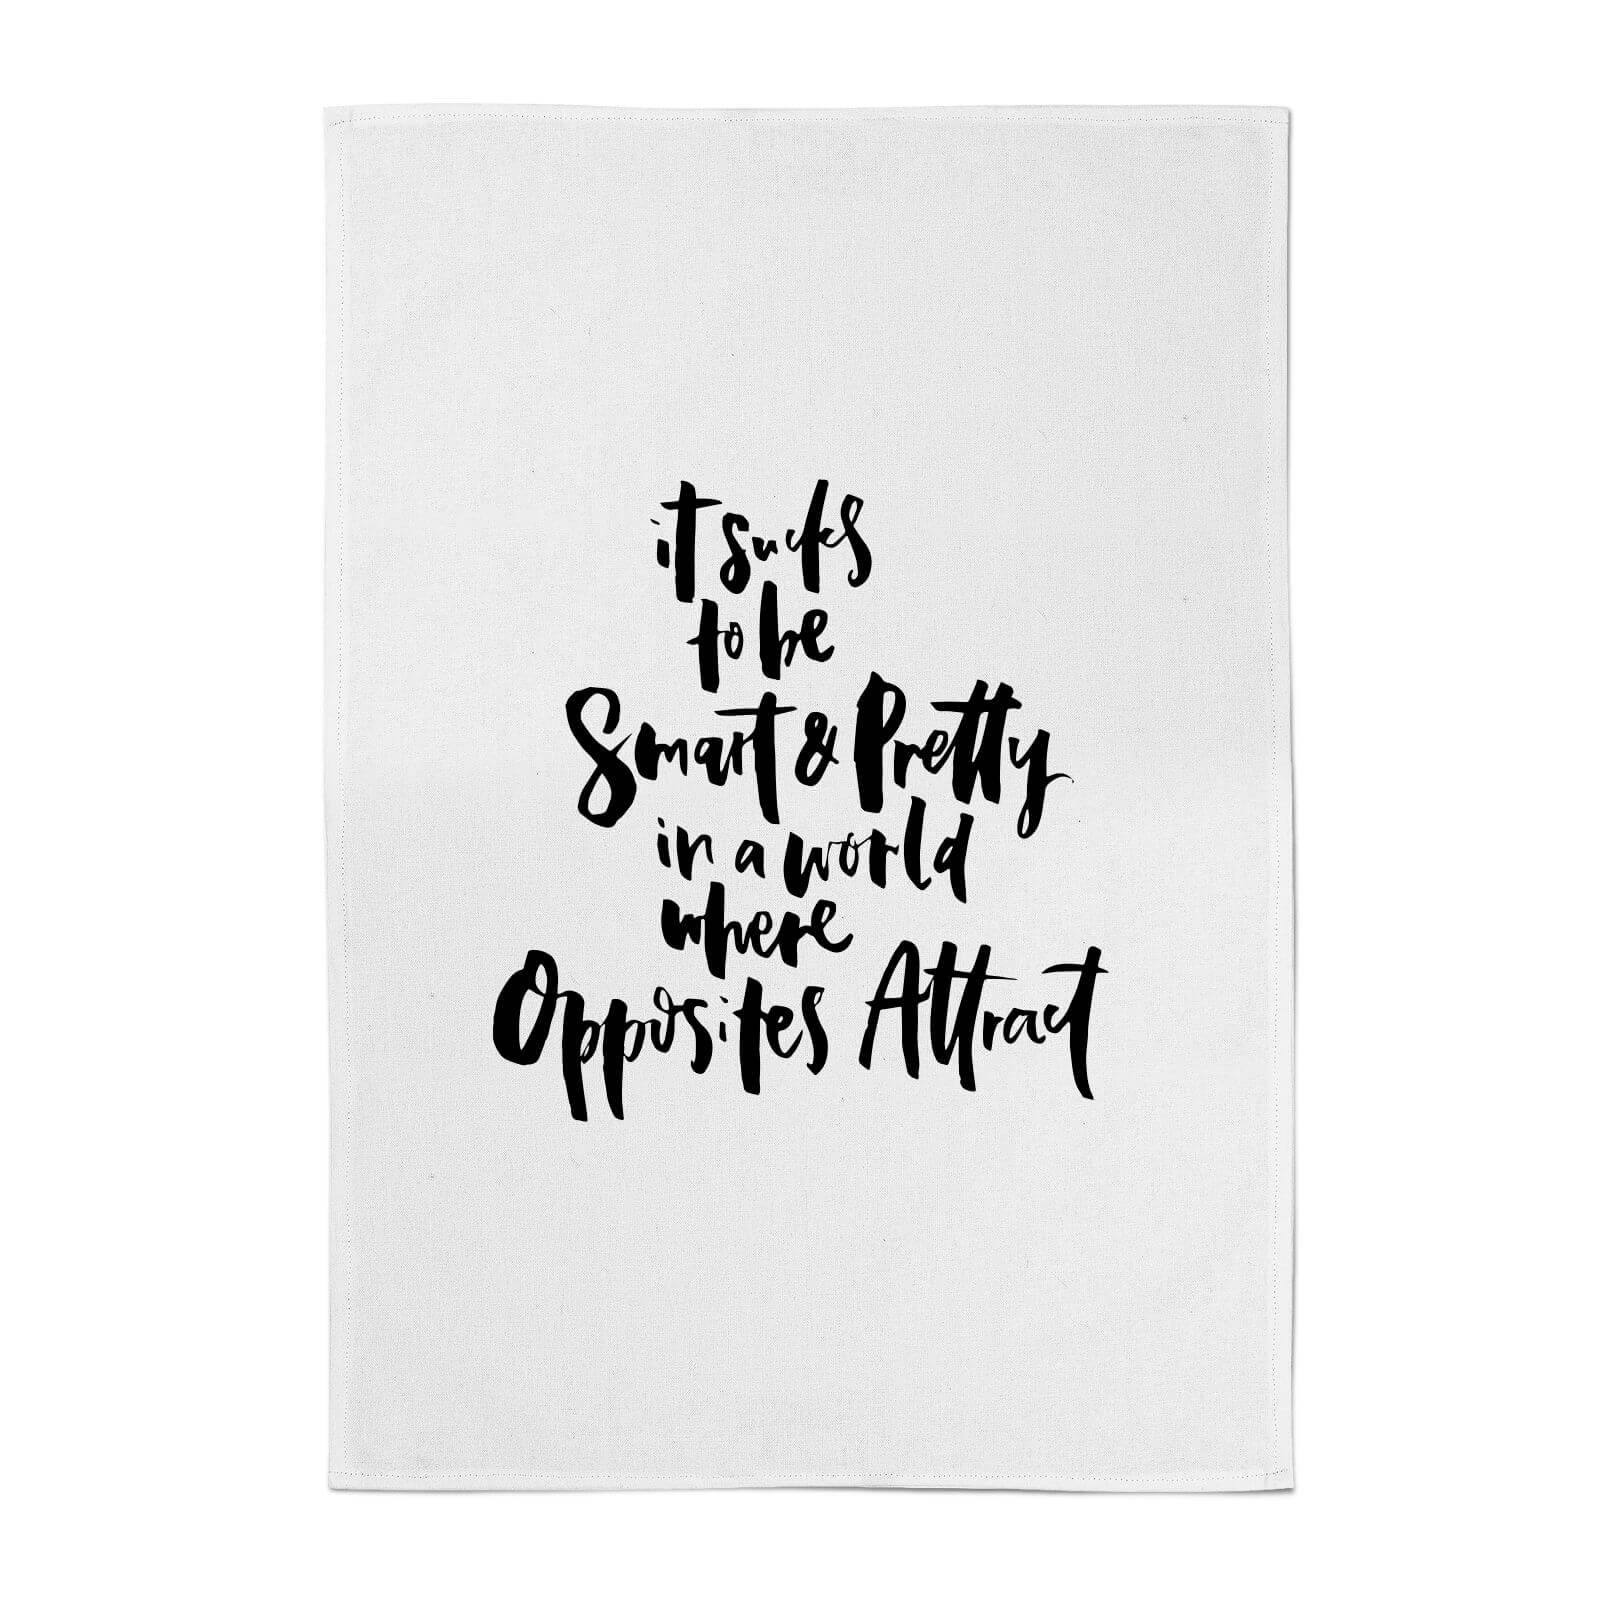 it sucks
to be
Smart & Pretty
in a world
where
Opposites Attract